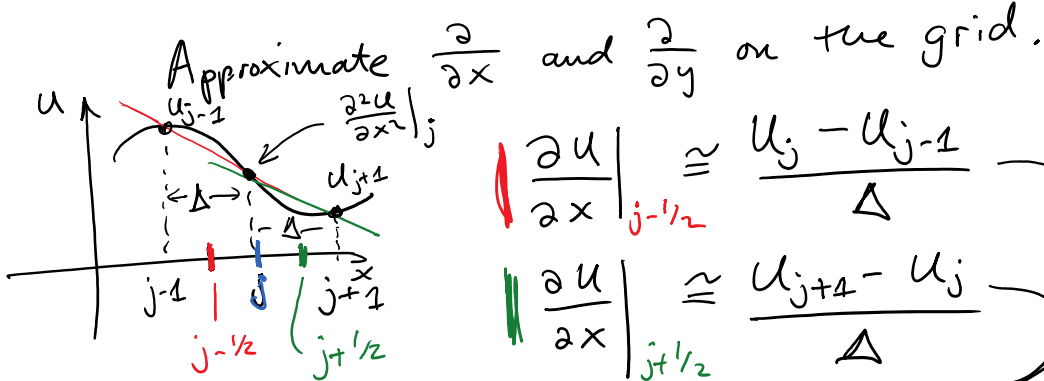 Approximate ∂/∂x and ∂/∂y on the grid.
u
u_{j-1}
∂²u/∂x²|_j
u_{j+1}
Δ
Δ
j-1 j j+1 x
j-1/2 j+1/2
∂u/∂x|_{j-1/2} ≅ (u_j - u_{j-1})/Δ
∂u/∂x|_{j+1/2} ≅ (u_{j+1} - u_j)/Δ